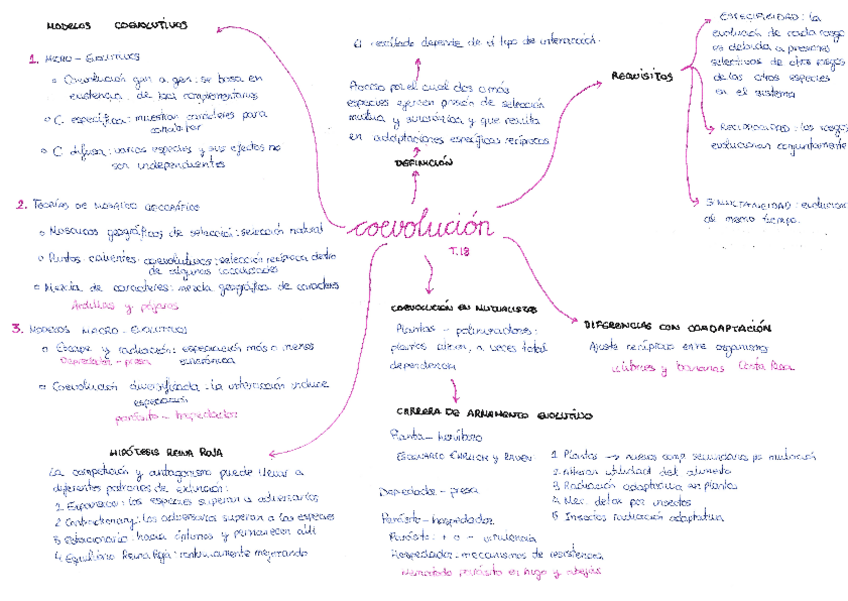 MODELOS COEVOLUTIVOS
1. MICRO-EVOLUTIVOS
Coevolución gen a gen: se basa en
existencia de loci complementarios
C. específica: muestran caracteres para
C. difusa: varias especies y sus efectos no
son independientes
2. TEORÍAS DE MOSAICO GEOGRÁFICO
Mosaicos geográficos de selección: selección natural
Puntos calientes coevolutivos: selección recíproca dentro
de algunas localidades
Mezcla de caracteres: mezcla geográfica de caracteres
Ardillas y pájaros
3. MODELOS MACRO-EVOLUTIVOS
Escape y radiación: especiación más o menos
Depredador-presa sincrónica
Coevolución diversificada: la interacción induce
especiación
parásito-hospedador
HIPÓTESIS REINA ROJA
La competición y antagonismo puede llevar a
diferentes patrones de extinción:
1. Expansión: las especies superan a adversarios
2. Contractionary: los adversarios superan a las especies
3. Estacionario: hacia óptimos y permanecen allí
4. Equilibrio Reina Roja: continuamente mejorando
El resultado depende de el tipo de interacción.
Proceso por el cual dos o más
especies ejercen presión de selección
mutua y sincrónica y que resulta
en adaptaciones específicas recíprocas
DEFINICIÓN
coevolución
T.18
REQUISITOS
ESPECIFICIDAD: la
evolución de cada rasgo
es debida a presiones
selectivas de otros rasgos
de las otras especies
en el sistema
RECIPROCIDAD: los rasgos
evolucionan conjuntamente
SIMULTANEIDAD: evolucionan
al mismo tiempo.
COEVOLUCIÓN EN MUTUALISTAS
Plantas - polinizadores:
plantas atraen, a veces total
dependencia
DIFERENCIAS CON COADAPTACIÓN
Ajuste recíproco entre organismos
colibríes y bananas Costa Rica
CARRERA DE ARMAMENTO EVOLUTIVO
Planta - herbívoro
ESCENARIO EHRLICH Y RAVEN
1. Plantas → nuevos comp. secundarios por mutación
2. Alteran utilidad del alimento
3. Radiación adaptativa en plantas
4. Mec. detox por insectos
5. Insectos radiación adaptativa
Depredador - presa
Parásito - hospedador
Parásito: + o - virulencia
Hospedador - mecanismos de resistencia
Nematodo parásito en higo y abejas